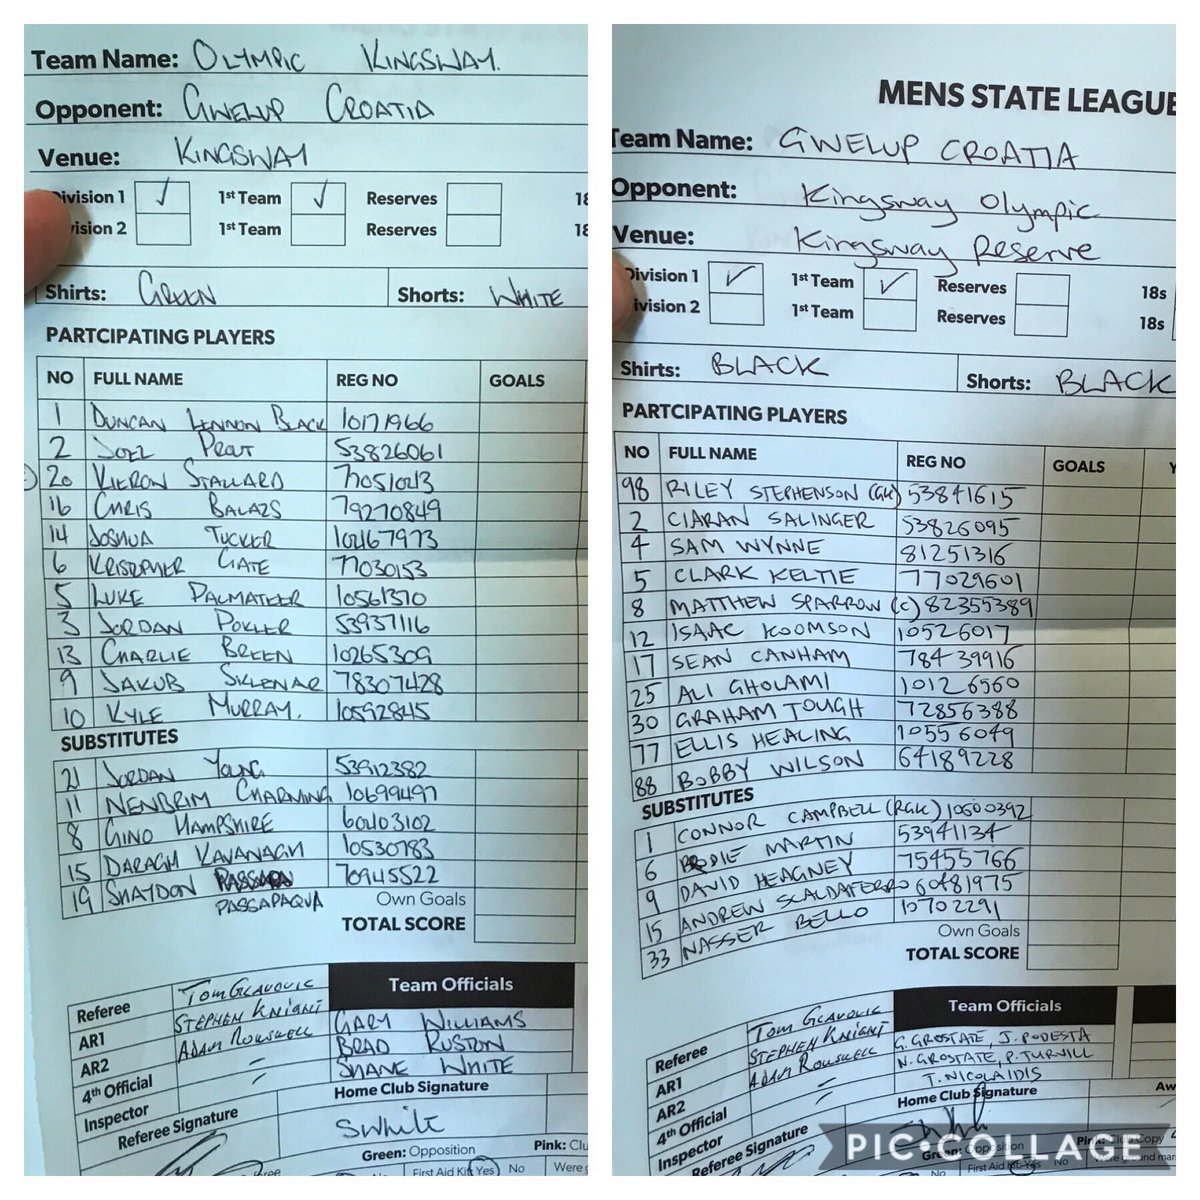 Team Name: OLYMPIC KINGSWAY.
Opponent: GWELUP CROATIA
Venue: KINGSWAY
Division 1 ✓ 1st Team ✓ Reserves 18
vision 2 1st Team Reserves 18
Shirts: GREEN Shorts: WHITE
PARTCIPATING PLAYERS
NO FULL NAME REG NO GOALS
1 DUNCAN LENNON BLACK 10171966
2 JOEL PROUT 53826061
20 KIERON STALLARD
16 CHRIS BALAZS 79270849
14 JOSHUA TUCKER 10467973
6 KRISTOPHER GATE 77030153
5 LUKE PALMATEER 10561370
3 JORDAN 53937116
13 CHARLIE BREEN 10265309
9 JAKUB SKLENAR 78307428
10 KYLE MURRAY. 10592845
SUBSTITUTES
21 JORDAN YOUNG 53912382
11 NENBRIM CHARMING 10699497
8 GINO HAMPSHIRE 60403102
15 DARAGH KAVANAGH 10530783
19 SHAYDON 70945522
PASSAPAQUA
Own Goals
TOTAL SCORE
Team Officials
Referee TOM GLAVOVIC
AR1 STEPHEN KNIGHT GARY WILLIAMS
AR2 ADAM ROUSWELL BRAD RUSTON
4th Official – SHANE WHITE
Inspector – Home Club Signature
Referee Signature SWhite
Green: Opposition Pink: Clu
First Aid Kit Yes) No Were g
MENS STATE LEAGUE
Team Name: GWELUP CROATIA
Opponent: Kingsway Olympic
Venue: Kingsway Reserve
Division 1 ✓ 1st Team ✓ Reserves 18s
ivision 2 1st Team Reserves 18s
Shirts: BLACK Shorts: BLACK
PARTCIPATING PLAYERS
NO FULL NAME REG NO GOALS Y
98 RILEY STEPHENSON (GK) 53841615
2 CIARAN SALINGER 53826095
4 SAM WYNNE 81251316
5 CLARK KELTIE 77029601
8 MATTHEW SPARROW (C) 82355389
12 ISAAC KOOMSON 10526017
17 SEAN CANHAM 78439916
25 ALI GHOLAMI 10126560
30 GRAHAM TOUGH 72856388
77 ELLIS HEALING 10556049
88 BOBBY WILSON 64189228
SUBSTITUTES
1 CONNOR CAMPBELL (RGK) 10600392
6 MARTIN 53941134
9 DAVID HEAGNEY 75455766
15 ANDREW SCALDAFERRO 60481975
33 NASSER BELLO 10702291
Own Goals
TOTAL SCORE
Team Officials
Referee TOM GLAVOVIC G. GROSTATE, J. PODESTA
AR1 STEPHEN KNIGHT N. GROSTATE, P. TURVILL
AR2 ADAM ROUSWELL T. NICOLAIDIS
4th Official – Home Club Signature Aw
Inspector –
Referee Signature
Green: Opposition Pink: Club Copy
First Aid Kit: Yes No Were ground mar
PIC•COLLAGE